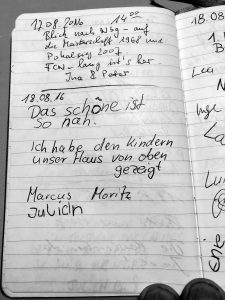 12.08.2016 14⁰⁰
Blick nach Nbg - auf
die Meisterschaft 1968 und
Pokalsieg 2007
FCN - lang ist's her
Ina & Peter
18.08.16
Das schöne ist
so nah.
Ich habe den Kindern
unser Haus von oben
gezeigt
Marcus Moritz
Julian
18.08.
1.
B
Lea
N
Inge
La